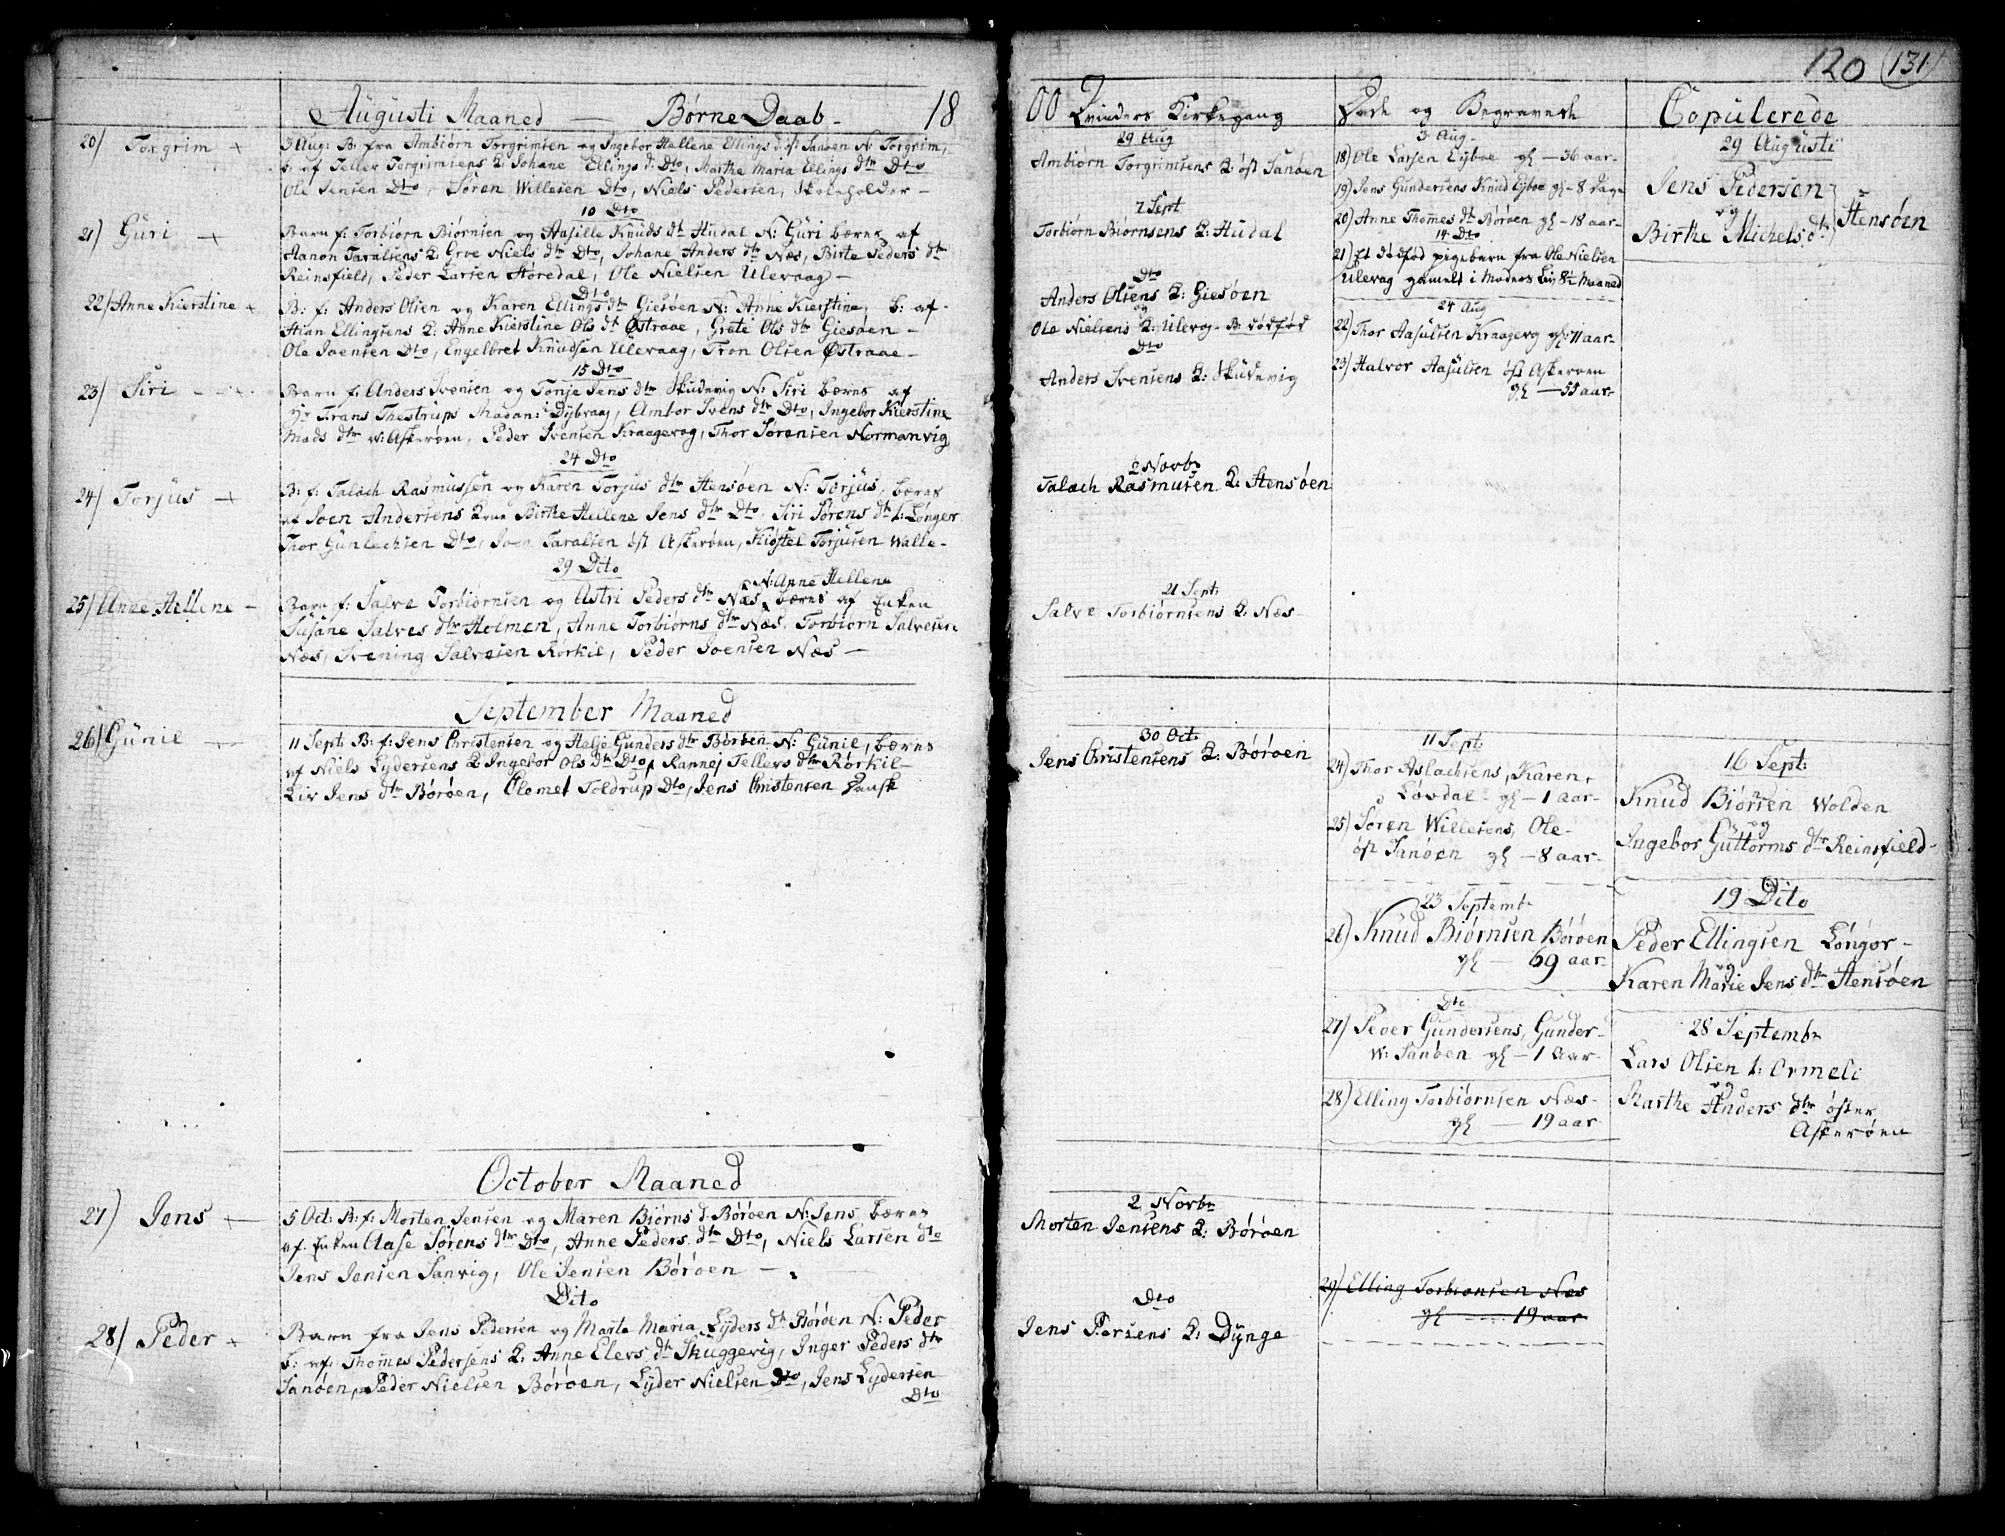 120 (131)
Augusti Maaned — Børne Daab - 18
20/ Torgrim +
3 Aug: B: fra Ambiørn Torgrimsen og Ingebor Hellene Ellings d: øst Sanøen N: Torgrim,
b: af Tellef Torgrimsens K: Johane Ellings d: Dto, Marthe Maria Ellings dtr Dto
Ole Jensen Dto, Søren Willesen Dto, Niels Pedersen, Skoleholder —
10 Dto
21/ Guri +
Barn f: Torbiørn Biørnsen og Aasille Knuds dt Hudal N: Guri bærns af
Aanon Taralsens K: Groe Niels dtr Dto, Johane Anders dtr Næs, Birte Peders dtr
Reinsfield, Peder Larsen Støredal, Ole Nielsen Ulevaag —
Dto
22/ Anne Kierstine +
B: f: Anders Olsen og Karen Ellings dtr Giesøen N: Anne Kierstine, b: af
Stian Ellingsens K: Anne Kierstine Ols dt Østraae, Grete Ols dtr Giesøen —
Ole Joensen Dto, Engelbret Knudsen Ulevaag, Tron Olsen Østraae —
15 Dto
23/ Siri — +
Barn f: Anders Svensen og Tonje Jens dtr Skudevig N: Siri bærns af
Hr Frans Thestrups Madam: Dybvaag, Ambor Svens dtr Dto, Ingebor Kierstine
Mads dtr W: Askerøen, Peder Svensen Kraagevog, Thor Sørensen Normanvig
24 Dto
24/ Torjus +
B: f: Falach Rasmussen og Karen Torjus dtr Stensøen N: Torjus, bærns
af Joen Andersens Kone Birthe Hellene Jens dtr Dto, Siri Sørens dtr l: Longer
Thor Gunlechsen Dto, Joen Taralsen øst Askerøen, Kiøstel Torjusen Walle —
29 Dito
25/ Anne Hellene —
N: Anne Hellene
Barn f: Salve Torbiørnsen og Astri Peders dtr Næs, bærns af Enken
Susane Salves dtr Holmen, Anne Torbiørns dtr Næs, Torbiørn Salvesen
Næs, Svening Salvesen Rørkil, Peder Joensen Næs —
September Maaned
26/ Gunil —
11 Sept: B: f: Jens Christensen og Helje Gunders dtr Børøen N: Gunil, bærns
af Niels Lydersens K Ingebor Ols dtr Dto, Rannej Tellevs dtr Rørkil —
Liv Jens dtr Børøen, Clemet Toldrup Dto, Jens Christensen Hausk
October Maaned
27/ Jens +
5 Oct: B: f: Morten Jensen og Maren Biørns d: Børøen N: Jens bærns
af Enken Aase Sørens dtr Dto, Anne Peders dtr Dto, Niels Larsen dto
Jens Jensen Sanvig, Ole Jensen Børøen —
Dito
28/ Peder +
Barn fra Jens Pedersen og Marte Maria Lyders dtr Børøen N: Peder
b: af: Thomes Pedersens K: Anne Elevs dtr Skuggevig, Inger Peders dtr
Sanøen, Peder Nielsen Børøen, Lyder Nielsen Dto, Jens Lydersen
Dto
00 Qvinders Kirkegang
29 Aug
Ambiørn Torgrimsens K: øst Sanøen
7 Sept
Torbiørn Biørnsens K: Hudal
Dto
Anders Olsens K: Giesøen
og
Ole Nielsens K: Ulevog - B: dødfød
Dto
Anders Svensens K: Skudevig
2 Novbr
Falach Rasmusen K: Stensøen
21 Sept:
Salve Torbiørnsens K: Næs —
30 Oct:
Jens Christensens K: Børøen
2 Novbr
Morten Jensens K: Børøen
Dto
Jens Persens K: Dynge
Døde og Begravede
3 Aug —
18) Ole Larsen Eyboe gl — 36 aar —
19) Jens Gundersens Knud Eyboe gl — 8 Dage
20) Anne Thomes dtr Børøen gl — 18 aar —
14 Dto
21) Et dødfød pigebarn fra Ole Nielsen
Ulevag gamelt i Moders Liv 8½ Maaned
24 Aug
22) Thor Aasulsen Kraagevog gl: 71 aar —
23) Halvor Aasulsen øst Askerøen
gl — 55 aar —
11 Sept
24) Thor Aslachsens, Karen,
Løvdal gl — 1 aar —
25) Søren Willesens, Ole —
øst Sanøen gl — 8 aar —
23 Septembr
26) Knud Biørnsen Børøen
gl — 69 aar —
Dto
27) Peder Gundersens, Gunder —
W: Sanøen gl — 1 aar —
28) Elling Torbiørnsen Næs —
gl — 19 aar
29) Elling Torbiørnsen Næs
gl — 19 aar
Copulerede
29 Augusti
Jens Pedersen
og
Birthe Michels dtr
Stensøen
16 Sept:
Knud Biørnsen Wolden
og
Ingebor Guttorms dtr Reinsfield —
19 Dito
Peder Ellingsen Longor —
og
Karen Marie Jens dtr Stensøen
28 Septembr
Lars Olsen l: Ormeli
og
Marthe Anders dtr øster
Askerøen